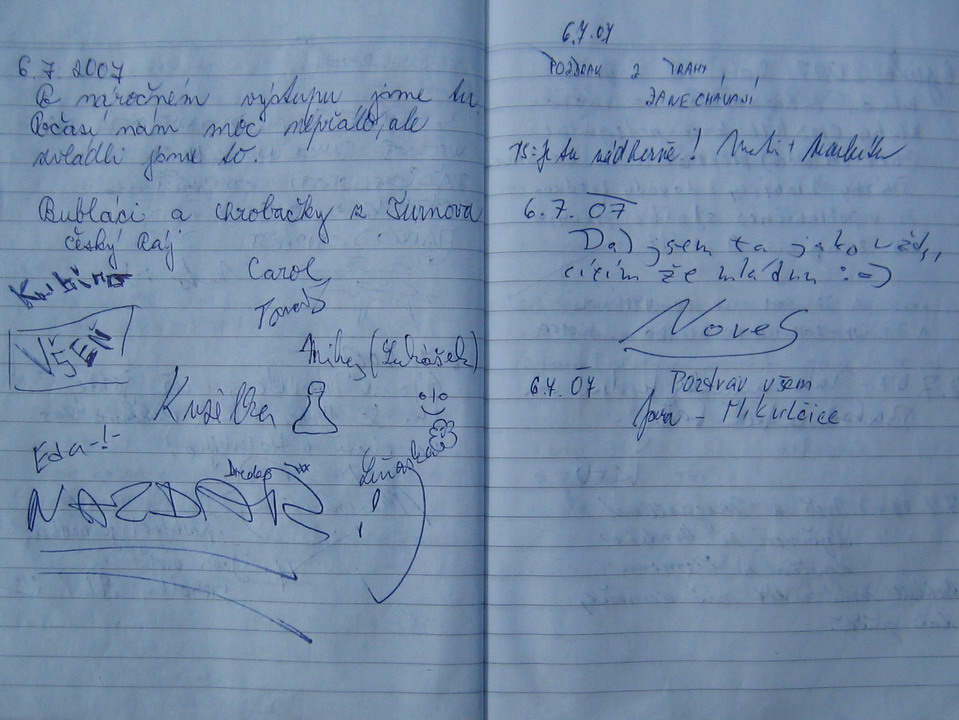 6.7.2007
Po náročném výstupu jsme tu.
Počasí nám moc nepřálo, ale
zvládli jsme to.
Bubláci a chrobáčky z Turnova
český Ráj
Carol
Tomáš
VŠJEŇ
Mihej (Lukášek)
Kuželka
Eda-!-
Liňoska
NAZDAR
6.7.07
POZDRAV Z
ZANECHÁVAJÍ
PS: je tu nádherně! + Markéta
6.7.07
Dal jsem to jako vždy,
cítím že mládnu :=)
NoveS
6.7.07 Pozdrav všem
Jara - Mikulčice